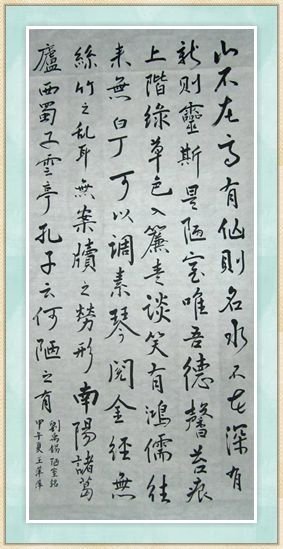 山不在高有仙则名水不在深有
龙则靈斯是陋室唯吾德馨苔痕
上階綠草色入簾青谈笑有鴻儒往
来無白丁可以调素琴阅金經無
絲竹之乱耳無案牘之勞形南陽諸葛
廬西蜀子雲亭孔子云何陋之有
劉禹錫陋室銘
甲午夏王萍萍